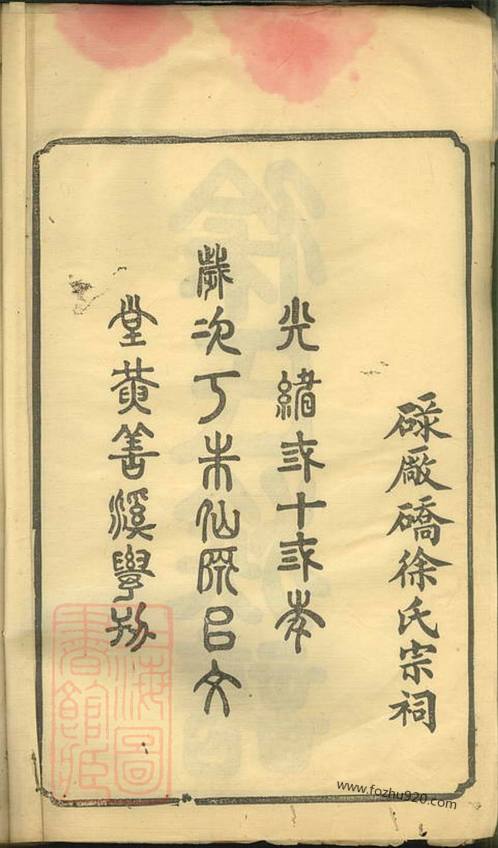 碌廠礄徐氏宗祠
光緒弎十弎年
歲次丁未仙源呂文
堂黄善溪學
上海圖
書館藏
www.fozhu920.com